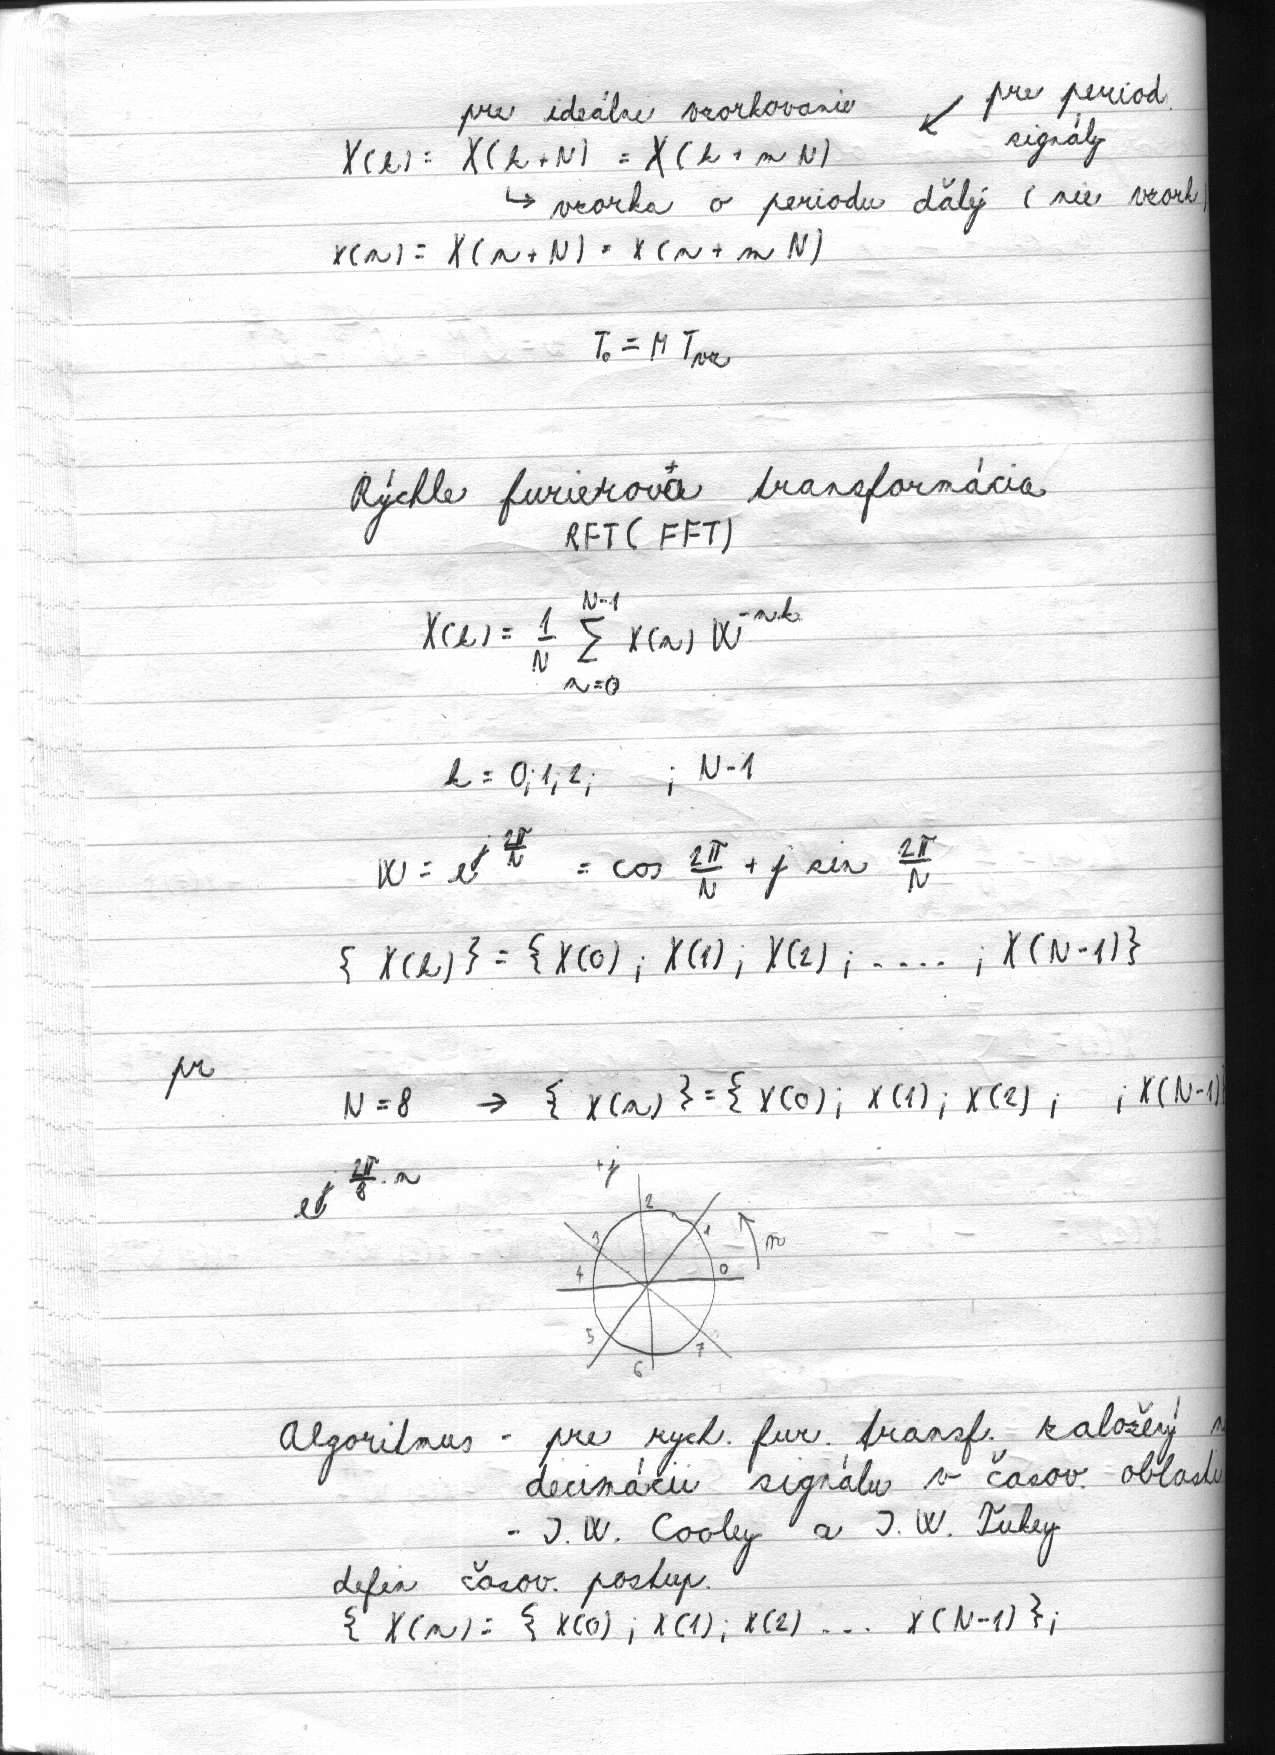 pre ideálne vzorkovanie ↙ pre period.
signály
X(k) = X(k+N) = X(k+mN)
↳ vzorka o periodu ďalý (nie vzork
x(n) = X(n+N) = x(n+mN)
T₀ = M Tvz
Rýchle furierova transformácia
RFT (FFT)
X(k) = 1/N ∑_{n=0}^{N-1} x(n) W^{-nk}
k = 0; 1; 2; ; N-1
W = e^{j 2π/N} = cos 2π/N + j sin 2π/N
{ X(k) } = { X(0) ; X(1) ; X(2) ; ..... ; X(N-1) }
pr
N = 8 → { x(n) } = { x(0) ; x(1) ; x(2) ; ; x(N-1) }
e^{j 2π/8 · n}
+j
2
3 1 n
4 0
5 7
6
Algoritmus - pre rych. fur. transf. založený
decimácii signálu v časov. oblasti
- J.W. Cooley a J.W. Tukey
defin časov. postup.
{ X(n) = { x(0) ; x(1) ; x(2) ... x(N-1) } ;